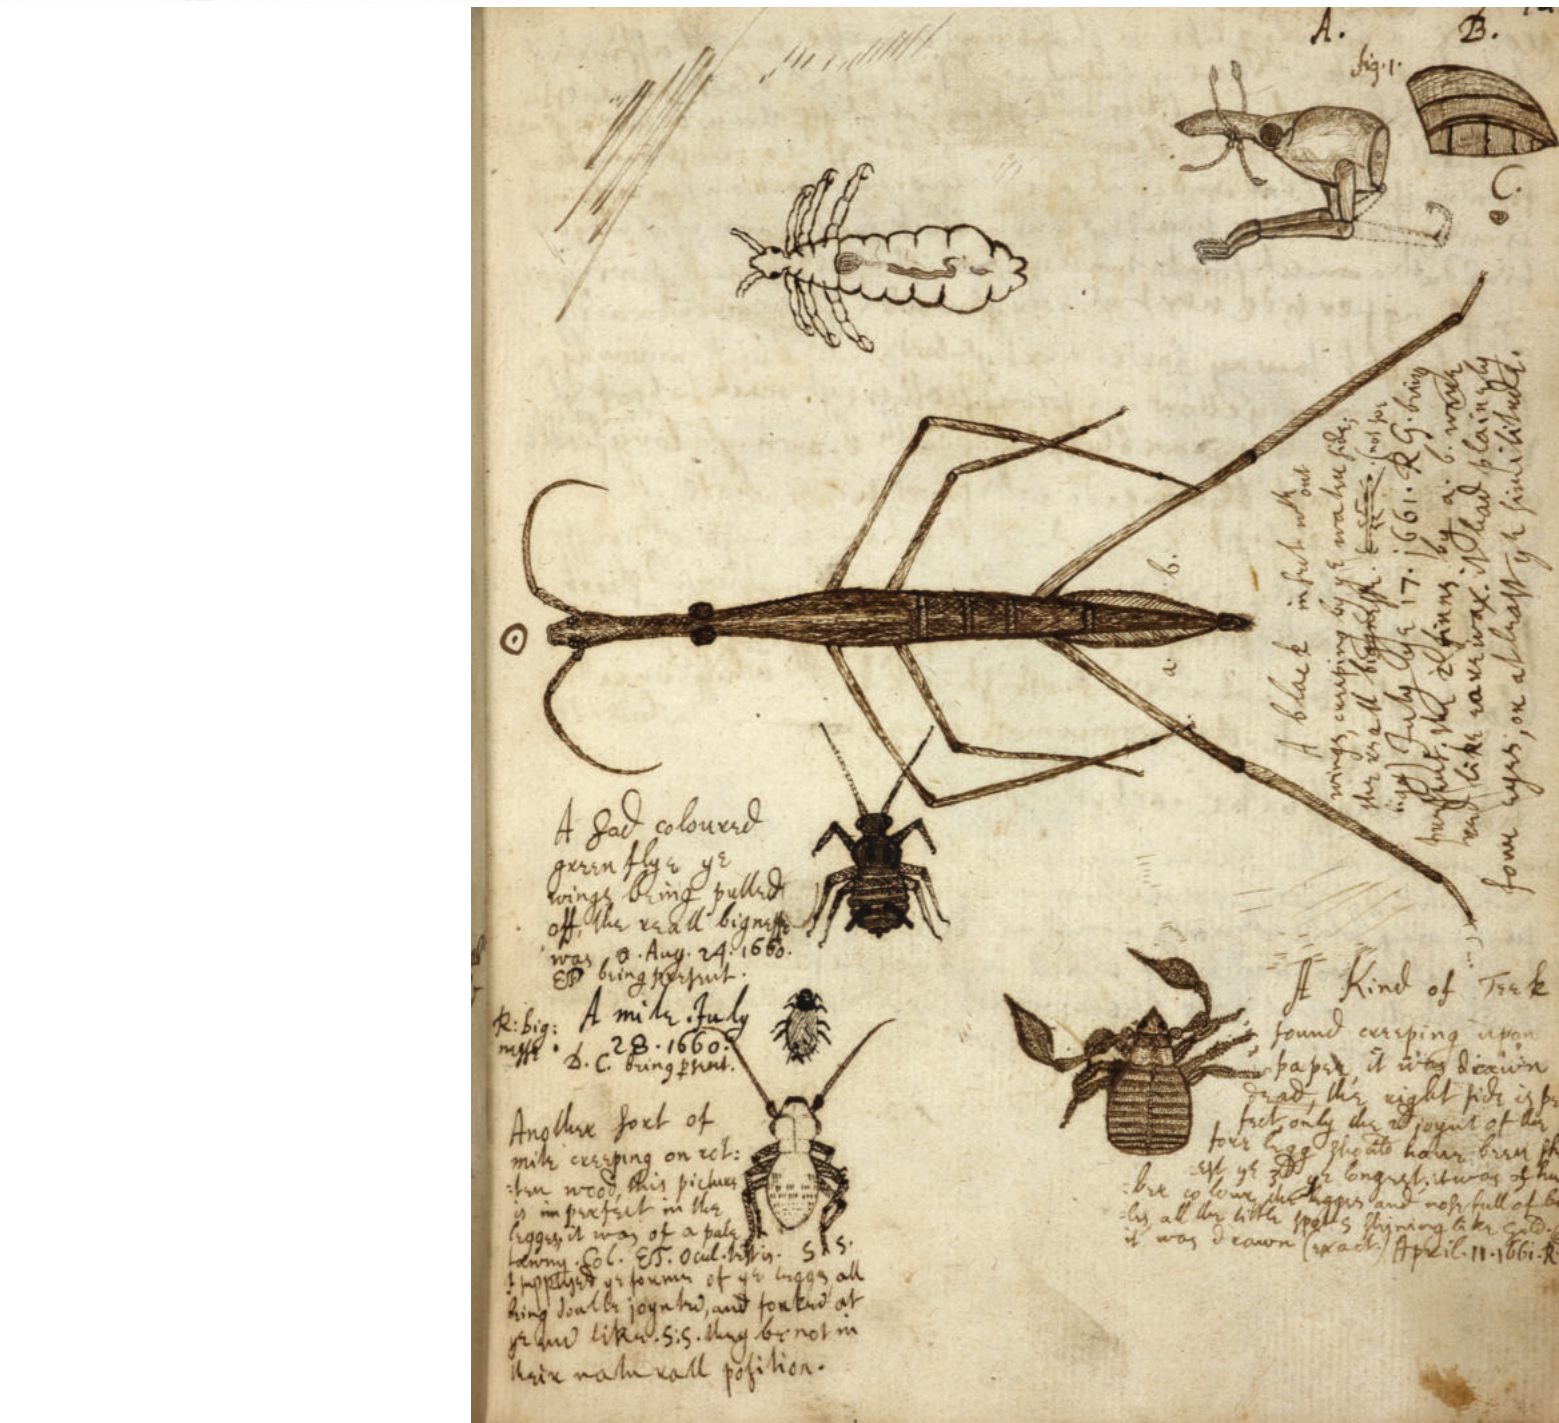 A. B.
fig. 1.
C.
A black insect with out
wings, creeping by ye water side;
the reall bignesse. (not fly
ing) July ye 17. 1661. R G. being
present.
red like sarewax. it had plainely
foure eyes, or at least ye similitude.
b.
a.
A Sad coloured
green flye ye
wings being pulled
off, the reall bignesse
was Aug. 24. 1660.
being present.
R: big:
nesse
A mite July
28. 1660.
D. C. being psent.
Another sort of
mite creeping on rot:
:ten wood, this picture
is imperfect in the
legges, it was of a pale
tawny. Col. S. S.
I supposed ye forme of ye legges, all
being double joynted, and forked at
ye end like. S.S. they be not in
their naturall position.
A Kind of Teek
found creeping upon
paper, it was drawn
dead, the right side is pe
fect only the 2d joynt of the
fore legg should have been sh
est ye 3d ye longest, it was of
ber colour, the legges and nose full of
les, all the little spots shining like gold.
it was drawn (exact) April. 11. 1661. R